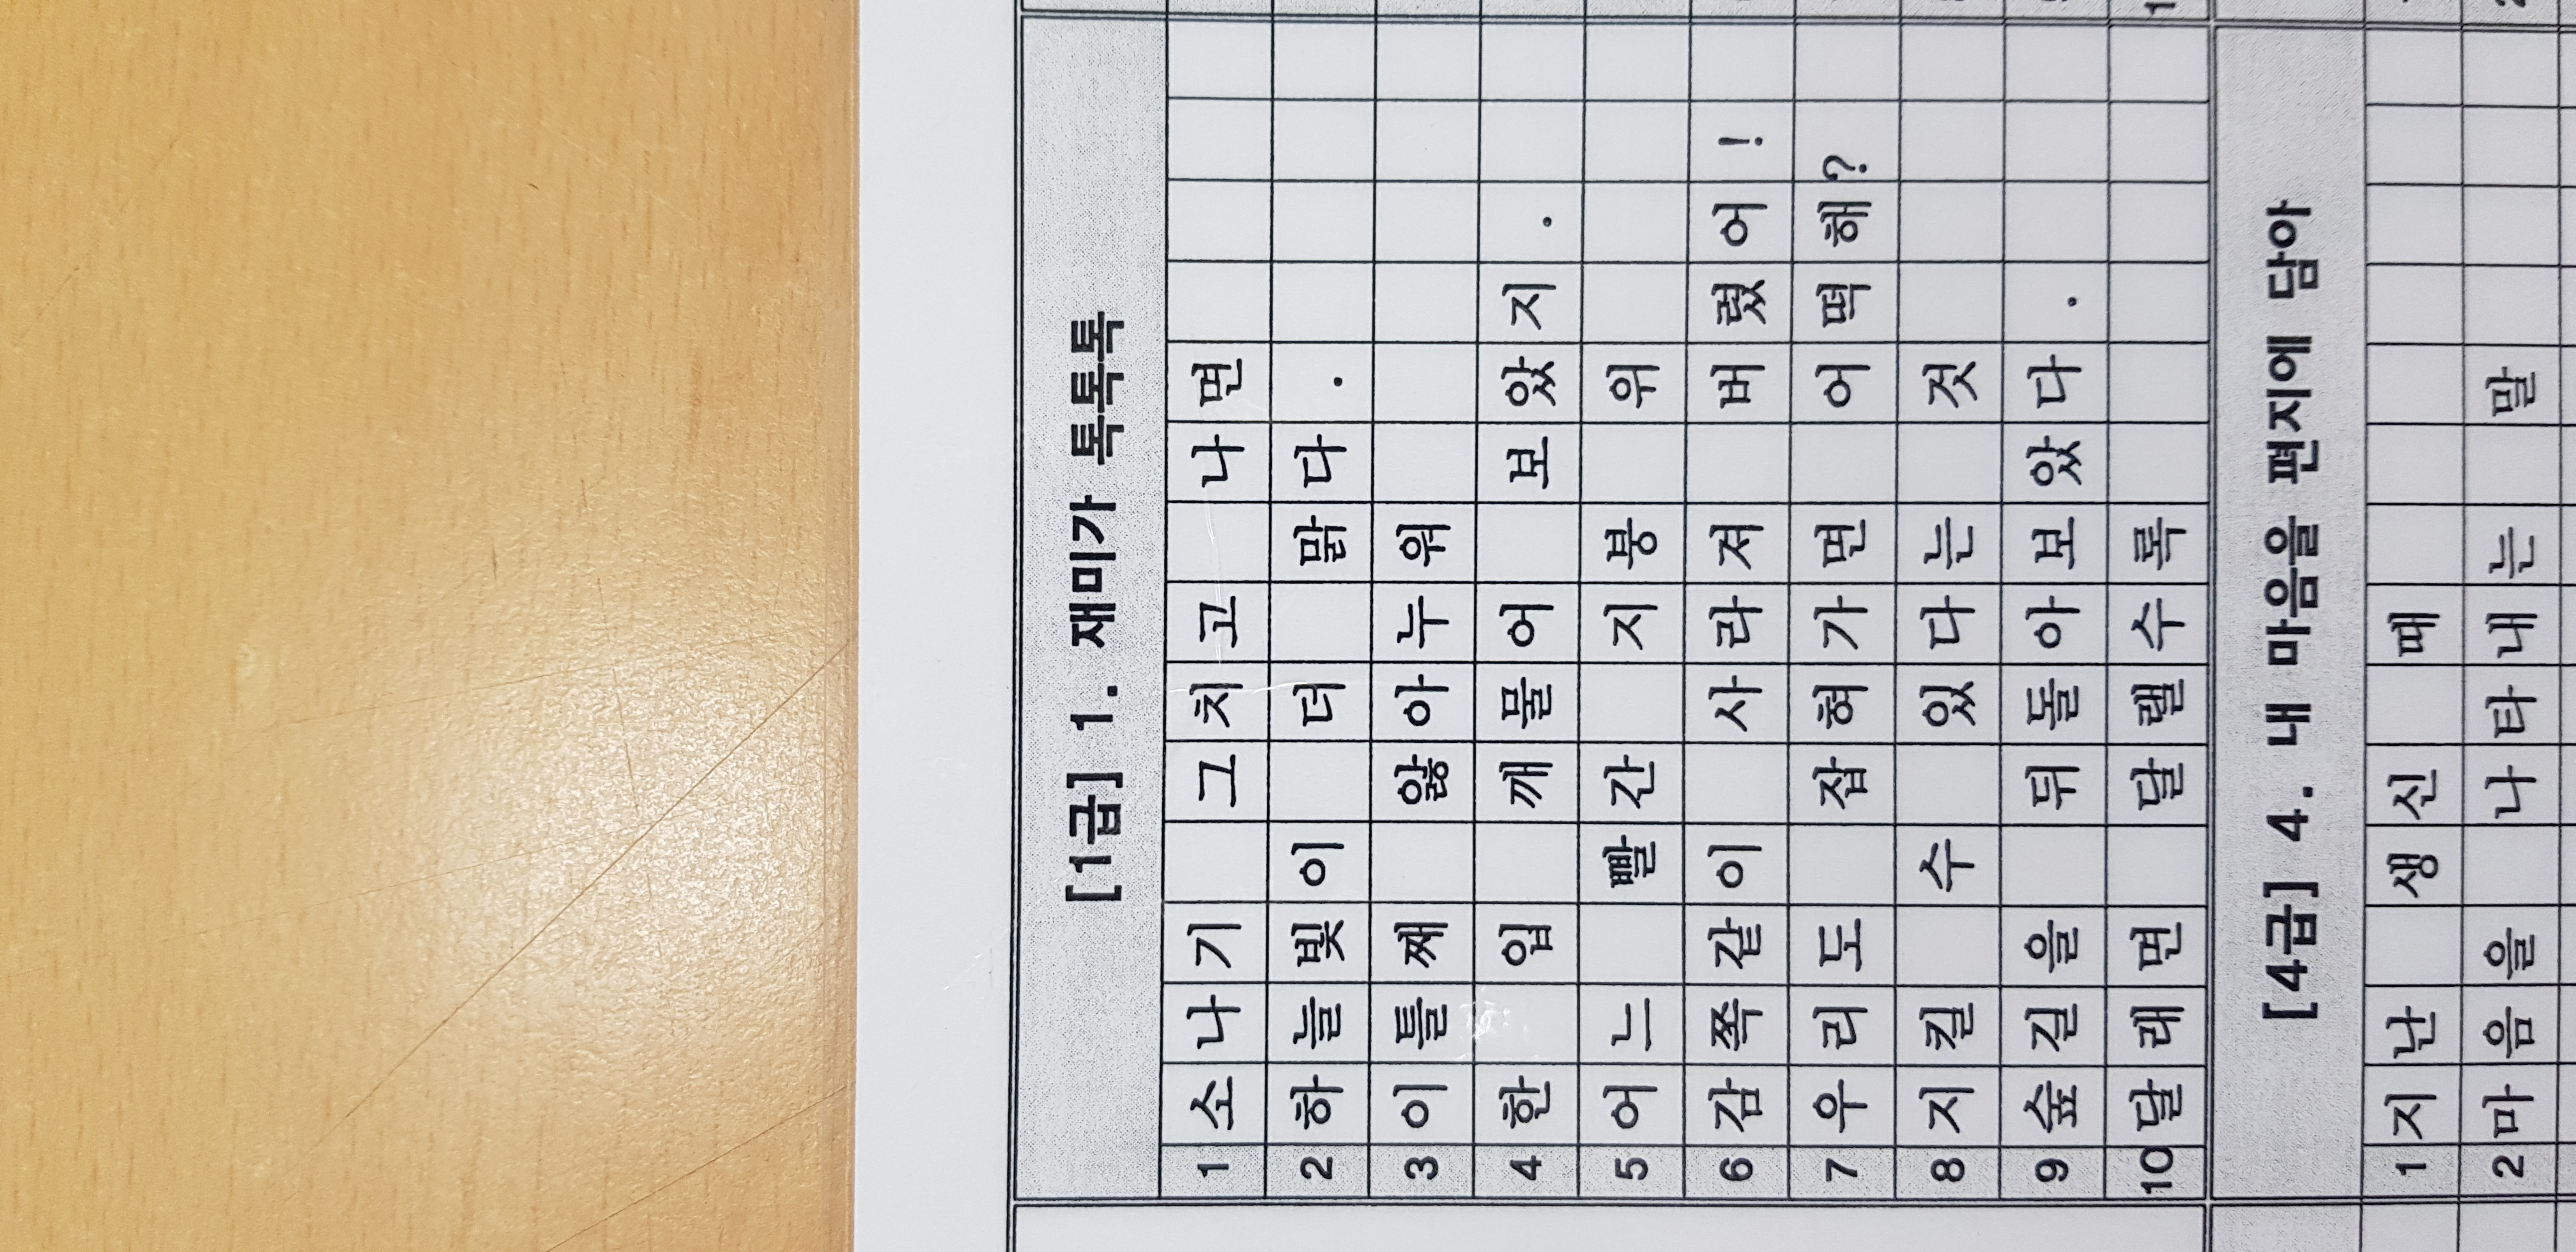 [1급] 1. 재미가 톡톡톡
1 소나기 그치고 나면
2 하늘빛이 더 맑다.
3 이틀째 앓아누워
4 한 입 깨물어 보았지.
5 어느 빨간 지붕 위
6 감쪽같이 사라져 버렸어!
7 우리도 잡혀가면 어떡해?
8 지킬 수 있다는 것
9 숲길을 뒤돌아보았다.
10 달래면 달랠수록
[4급] 4. 내 마음을 편지에 담아
1 지난 생신 때
2 마음을 나타내는 말